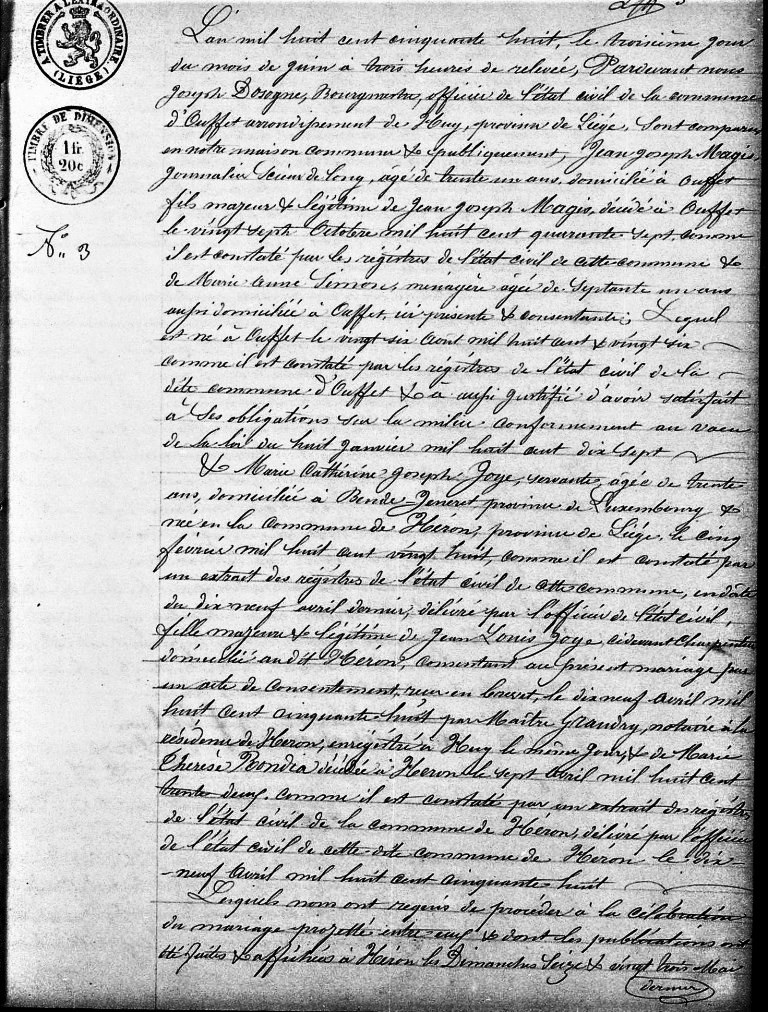 A TIMBRER A L'EXTRAORDINAIRE
(LIÉGE)
TIMBRE DE DIMENSION
1 fr
20c
N° 3
L'an mil huit cent cinquante huit, le troisième jour
du mois de juin à trois heures de relevée, Pardevant nous
Joseph Dosogne, Bourgmestre, officier de l'état civil de la commune
d'Ouffet arrondissement de Huy, province de Liége, Sont comparus
en notre maison commune & publiquement, Jean Joseph Magis
journalier Scieur de long, agé de trente un ans, domicilié à Ouffet
fils majeur & légitime de Jean Joseph Magis, décédé à Ouffet
le vingt sept Octobre mil huit cent quarante sept, comme
il est constaté par les régistres de l'état civil de cette commune &
de Marie Anne Simon, menagère agée de Septante un ans
aussi domiciliée à Ouffet, ici présente & consentante; Lequel
est né à Ouffet le vingt six Aout mil huit cent & vingt six
comme il est constaté par les régistres de l'état civil de la
dite commune d'Ouffet & à aussi justifié d'avoir satisfait
à Ses obligations sur la milice conformement au vœu
de la loi du huit janvier mil huit cent dix sept
& Marie Cathérine Joseph Joye, servante, agée de trente
ans, domiciliée à Bende Jeneret, province de Luxembourg &
née en la commune de Héron, province de Liége, le cinq
février mil huit cent vingt huit, comme il est constaté par
un extrait des régistres de l'état civil de cette commune, en date
du dix neuf avril dernier, délivré par l'officier de l'état civil,
fille majeure & légitime de Jean Louis Joye, cidevant Charpentier
domicilié au dit Héron, consentant au présent mariage par
un acte de consentement, reçu en brevet, le dix neuf avril mil
huit cent cinquante huit par Maître Grandry, notaire à la
résidence de Héron, enrégistré à Huy le même jour, & de Marie
Thérèse décédée à Héron le sept avril mil huit cent
trente deux comme il est constaté par un extrait des régistres
de l'état civil de la commune de Héron, délivré par l'officier
de l'état civil de cette dite commune de Héron le dix
-neuf Avril mil huit cent cinquante huit
Lesquels nous ont requis de procéder à la célébration
du mariage projetté entre eux & dont les publications ont
été faites & affichées à Héron les Dimanches Seize & vingt trois Mai
dernier